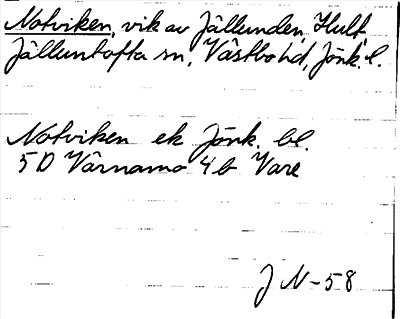 Notviken, vik av Jällunden, Hult
Jälluntofta sn, Västbo hd, Jönk. l.
Notviken ek Jönk. bl.
5D Värnamo 4b Vare
J N-58